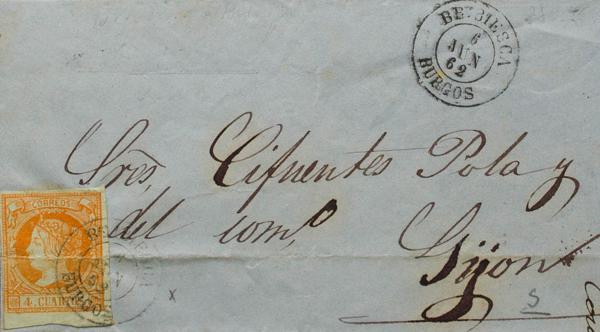 BRIBIESCA
6
JUN
62
BURGOS
Sres, Cifuentes Pola y
del comº
Gijon
S
CORREOS
4 CUART
BURGO